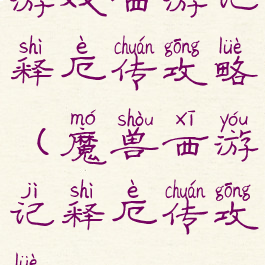 游戏西游记
shì è chuán gōng lüè
释厄传攻略
mó shòu xī yóu
(魔兽西游
jì shì è chuán gōng
记释厄传攻
lüè